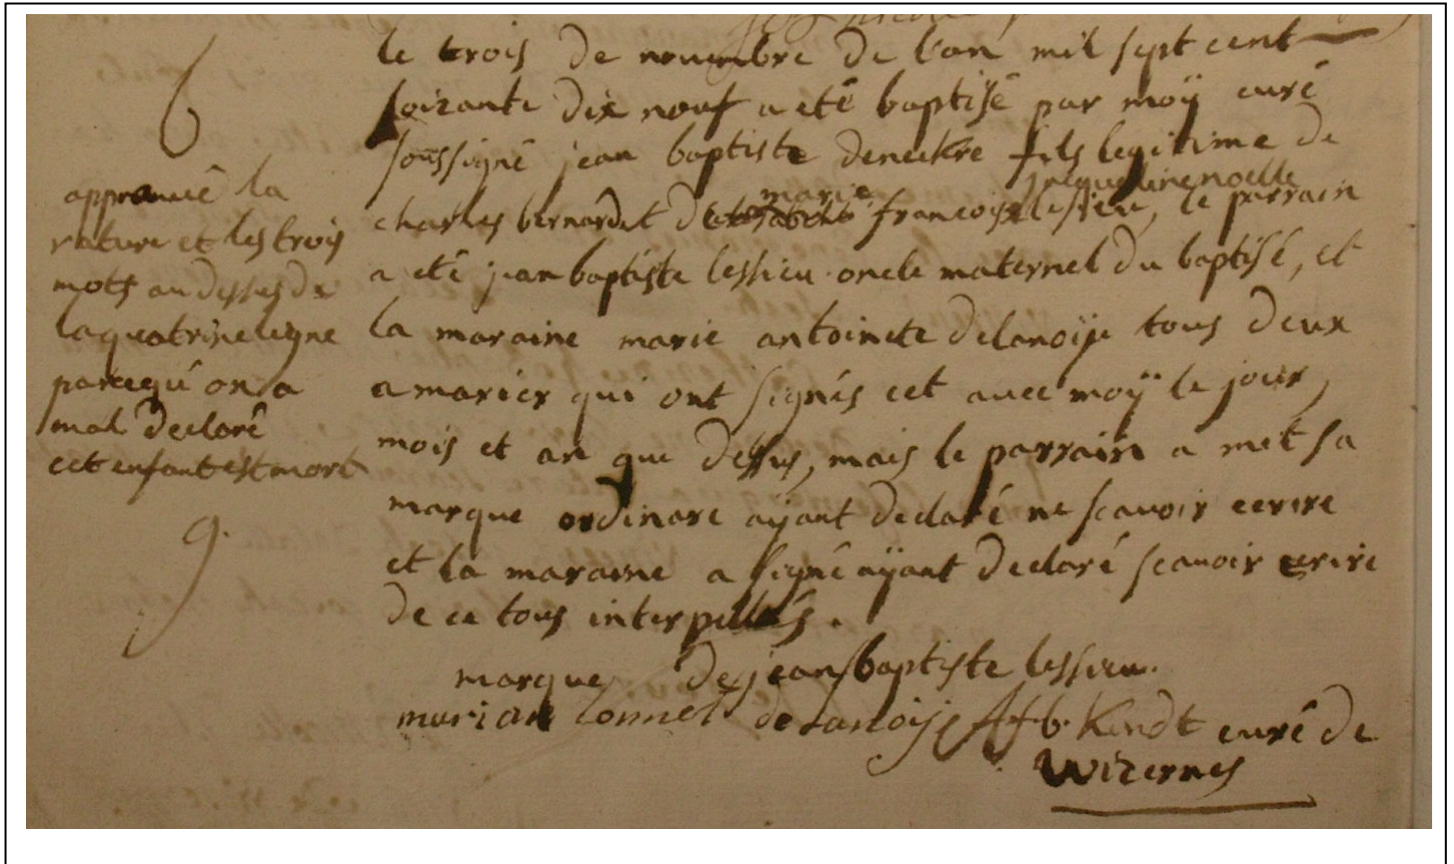 6
approuvé la
rature et les trois
mots au dessus de
la quatrine ligne
parcequ'on a
mal declaré
cet enfant est mort
9.
le trois de novembre de l'an mil sept cent
soizante dix neuf a eté baptisé par moÿ curé
soussigné jean baptiste deneckre fils legitime de
jacqueline noelle
marie
charles bernardet de francoise lesieu, le parrain
a eté jean baptiste lessieu oncle maternel du baptisé, et
la maraine marie antoinete delanoÿe tous deux
a marier qui ont signés cet avec moÿ le jour,
mois et an que dessus, mais le parrain a met sa
marque ordinare aÿant declaré ne scavoir ecrire
et la maraine a signé aÿant declaré scavoir ecrire
de ce tous interpellés.
marque de jean baptiste lessieu.
marian tonnet de Lanoij f b. Kindt curé de
Wizernes